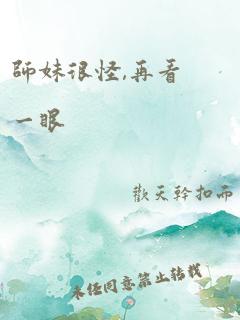 師妹很怪,再看
一眼
歡天幹扣而
未經同意禁止轉載